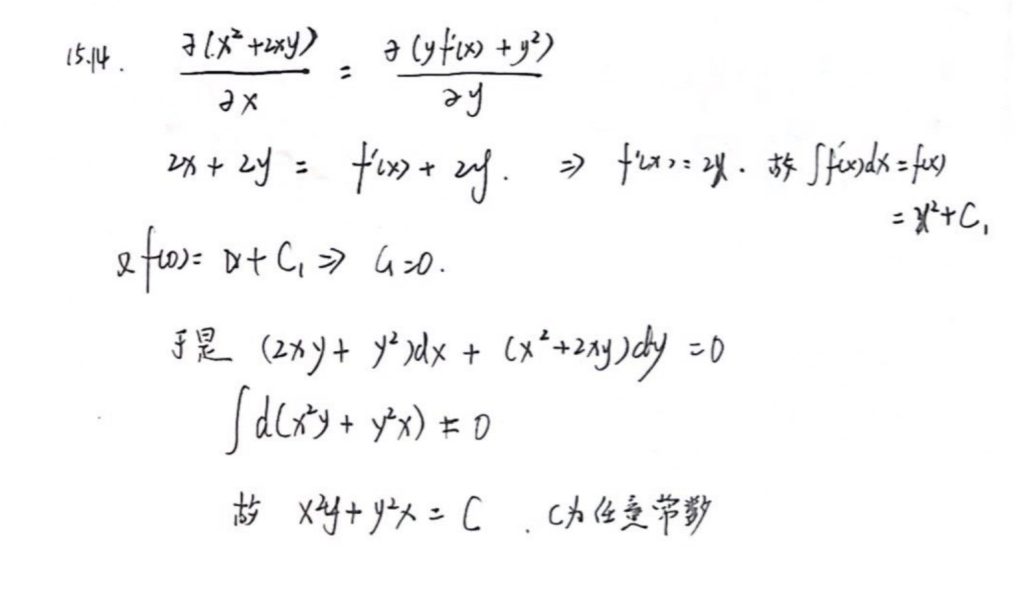 15.14. ∂(x²+2xy)/∂x = ∂(yf'(x)+y²)/∂y
2x + 2y = f'(x) + 2y. ⇒ f'(x) = 2x. 故 ∫f'(x)dx = f(x)
= x² + C₁
又 f(0) = 0 + C₁ ⇒ C₁=0.
于是 (2xy + y²)dx + (x²+2xy)dy = 0
∫d(x²y + y²x) = 0
故 x²y + y²x = C . C为任意常数